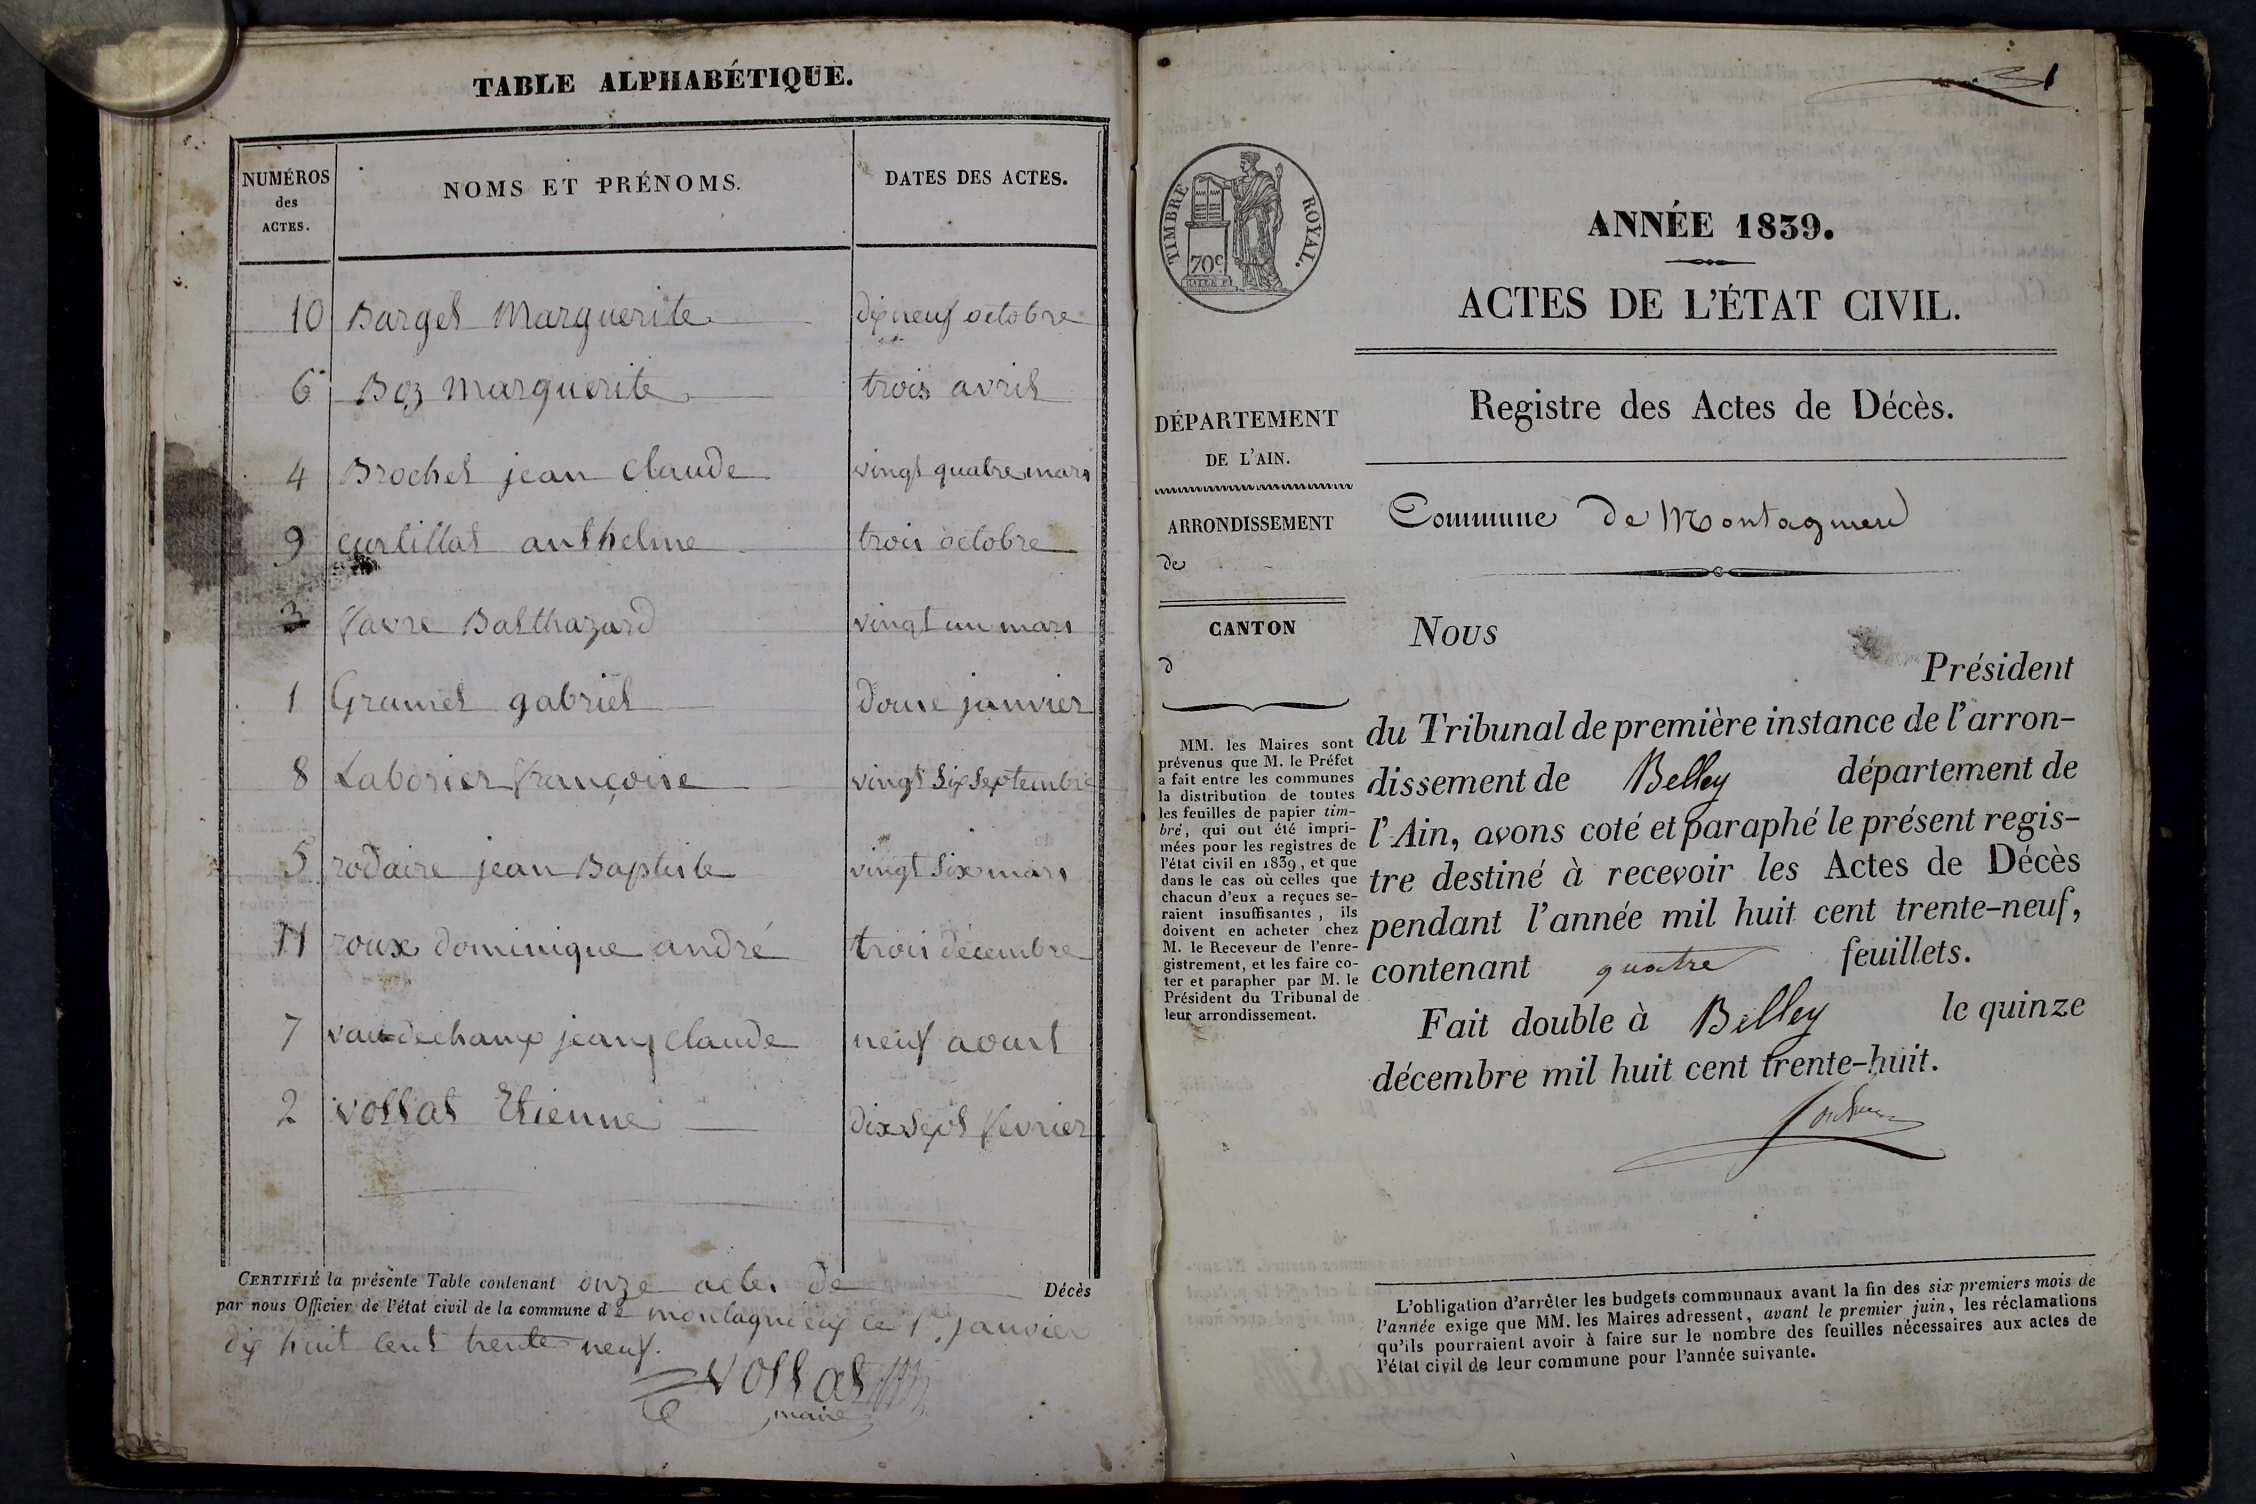 TABLE ALPHABÉTIQUE.
NUMÉROS des ACTES. NOMS ET PRÉNOMS. DATES DES ACTES.
10 Barget Marguerite dix neuf octobre
6 Boz Marguerite trois avril
4 Brochet jean Claude vingt quatre mars
9 curtillat anthelme trois octobre
3 favre Balthazard vingt un mars
1 Grumet gabriel douse janvier
8 Laborier françoise vingt six septembre
5 rodaire jean Baptiste vingt six mars
11 roux dominique andré trois décembre
7 vaudechamp jean claude neuf aoust
2 vollat Etienne dix sept fevrier
CERTIFIÉ la présente Table contenant onze actes de Décès
par nous Officier de l'état civil de la commune de montagnieux le 1er janvier
dix huit cent trente neuf.
vollat
maire
1
TIMBRE ROYAL.
70c
ANNÉE 1839.
ACTES DE L'ÉTAT CIVIL.
Registre des Actes de Décès.
DÉPARTEMENT
DE L'AIN.
ARRONDISSEMENT
de
CANTON
d
MM. les Maires sont
prévenus que M. le Préfet
a fait entre les communes
la distribution de toutes
les feuilles de papier tim-
bré, qui ont été impri-
mées pour les registres de
l'état civil en 1839, et que
dans le cas où celles que
chacun d'eux a reçues se-
raient insuffisantes, ils
doivent en acheter chez
M. le Receveur de l'enre-
gistrement, et les faire co-
ter et parapher par M. le
Président du Tribunal de
leur arrondissement.
Commune de Montagnieu
Nous
Président
du Tribunal de première instance de l'arron-
dissement de Belley département de
l'Ain, avons coté et paraphé le présent regis-
tre destiné à recevoir les Actes de Décès
pendant l'année mil huit cent trente-neuf,
contenant quatre feuillets.
Fait double à Belley le quinze
décembre mil huit cent trente-huit.
L'obligation d'arrêter les budgets communaux avant la fin des six premiers mois de
l'année exige que MM. les Maires adressent, avant le premier juin, les réclamations
qu'ils pourraient avoir à faire sur le nombre des feuilles nécessaires aux actes de
l'état civil de leur commune pour l'année suivante.